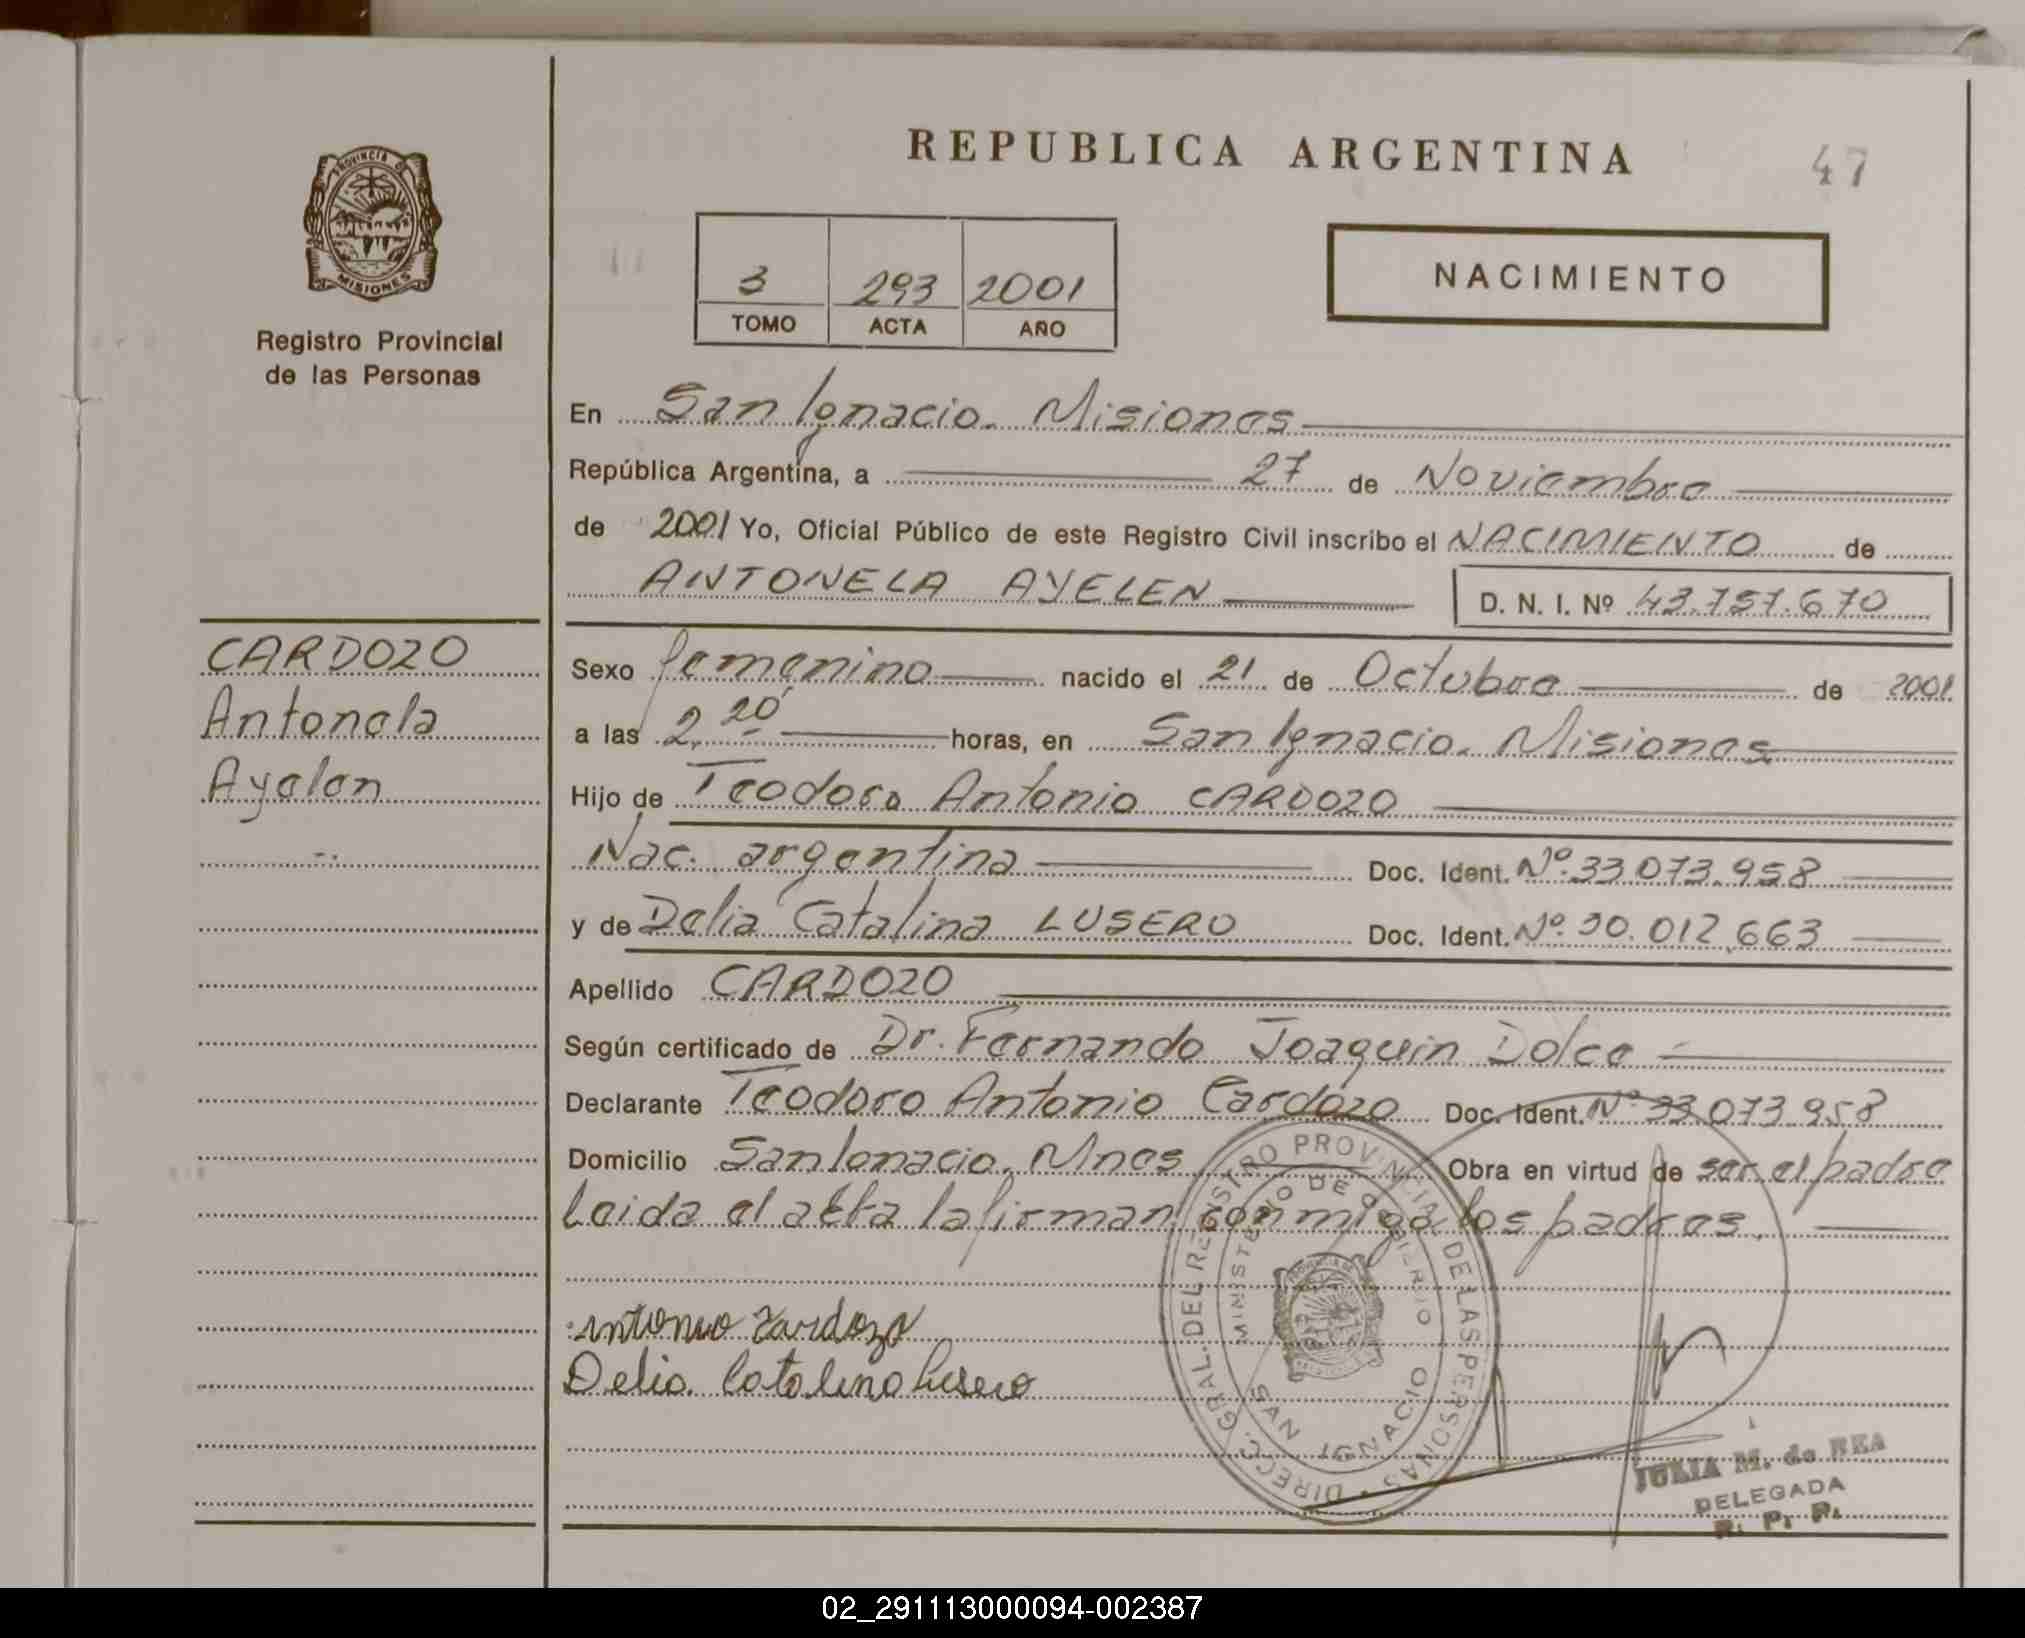 REPUBLICA ARGENTINA
47
PROVINCIA DE
MISIONES
Registro Provincial
de las Personas
3 293 2001
TOMO ACTA AÑO
NACIMIENTO
En San Ignacio. Misiones
República Argentina, a 27 de Noviembre
de 2001 Yo, Oficial Público de este Registro Civil inscribo el NACIMIENTO de
ANTONELA AYELEN D. N. I. Nº 43.757.670
CARDOZO
Antonela
Ayelen
Sexo femenino nacido el 21 de Octubre de 2001
a las 2,20 horas, en San Ignacio. Misiones
Hijo de Teodoro Antonio CARDOZO
Nac. argentina Doc. Ident. Nº.33.073.958
y de Delia Catalina LUSERO Doc. Ident. Nº.30.012.663
Apellido CARDOZO
Según certificado de Dr. Fernando Joaquin Dolce
Declarante Teodoro Antonio Cardozo Doc. Ident. Nº 33.073.958
Domicilio San Ignacio. Mnes Obra en virtud de ser el padre
leida el acta la firman conmigo los padres.
Antonio Cardozo
Delia Catalina Lusero
DIRECC. GRAL. DEL REGISTRO PROVINCIAL DE LAS PERSONAS
MINISTERIO DE GOBIERNO
SAN IGNACIO
JULIA M. de REA
DELEGADA
R. P. P.
02_291113000094-002387